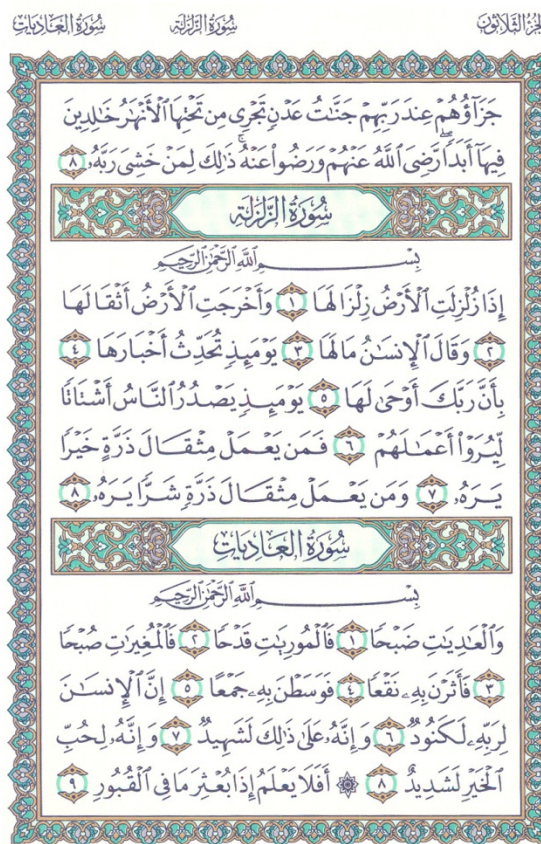 الجزء الثلاثون سورة الزلزلة سورة العاديات
جَزَآؤُهُمْ عِندَ رَبِّهِمْ جَنَّٰتُ عَدْنٍ تَجْرِى مِن تَحْتِهَا ٱلْأَنْهَٰرُ خَٰلِدِينَ
فِيهَآ أَبَدًا ۖ رَّضِىَ ٱللَّهُ عَنْهُمْ وَرَضُوا۟ عَنْهُ ۚ ذَٰلِكَ لِمَنْ خَشِىَ رَبَّهُۥ ٨
سُورَةُ الزَّلْزَلَةِ
بِسْمِ ٱللَّهِ ٱلرَّحْمَٰنِ ٱلرَّحِيمِ
إِذَا زُلْزِلَتِ ٱلْأَرْضُ زِلْزَالَهَا ١ وَأَخْرَجَتِ ٱلْأَرْضُ أَثْقَالَهَا
٢ وَقَالَ ٱلْإِنسَٰنُ مَا لَهَا ٣ يَوْمَئِذٍ تُحَدِّثُ أَخْبَارَهَا ٤
بِأَنَّ رَبَّكَ أَوْحَىٰ لَهَا ٥ يَوْمَئِذٍ يَصْدُرُ ٱلنَّاسُ أَشْتَاتًا
لِّيُرَوْا۟ أَعْمَٰلَهُمْ ٦ فَمَن يَعْمَلْ مِثْقَالَ ذَرَّةٍ خَيْرًا
يَرَهُۥ ٧ وَمَن يَعْمَلْ مِثْقَالَ ذَرَّةٍ شَرًّا يَرَهُۥ ٨
سُورَةُ العَادِيَاتِ
بِسْمِ ٱللَّهِ ٱلرَّحْمَٰنِ ٱلرَّحِيمِ
وَٱلْعَٰدِيَٰتِ ضَبْحًا ١ فَٱلْمُورِيَٰتِ قَدْحًا ٢ فَٱلْمُغِيرَٰتِ صُبْحًا
٣ فَأَثَرْنَ بِهِۦ نَقْعًا ٤ فَوَسَطْنَ بِهِۦ جَمْعًا ٥ إِنَّ ٱلْإِنسَٰنَ
لِرَبِّهِۦ لَكَنُودٌ ٦ وَإِنَّهُۥ عَلَىٰ ذَٰلِكَ لَشَهِيدٌ ٧ وَإِنَّهُۥ لِحُبِّ
ٱلْخَيْرِ لَشَدِيدٌ ٨ ۞ أَفَلَا يَعْلَمُ إِذَا بُعْثِرَ مَا فِى ٱلْقُبُورِ ٩